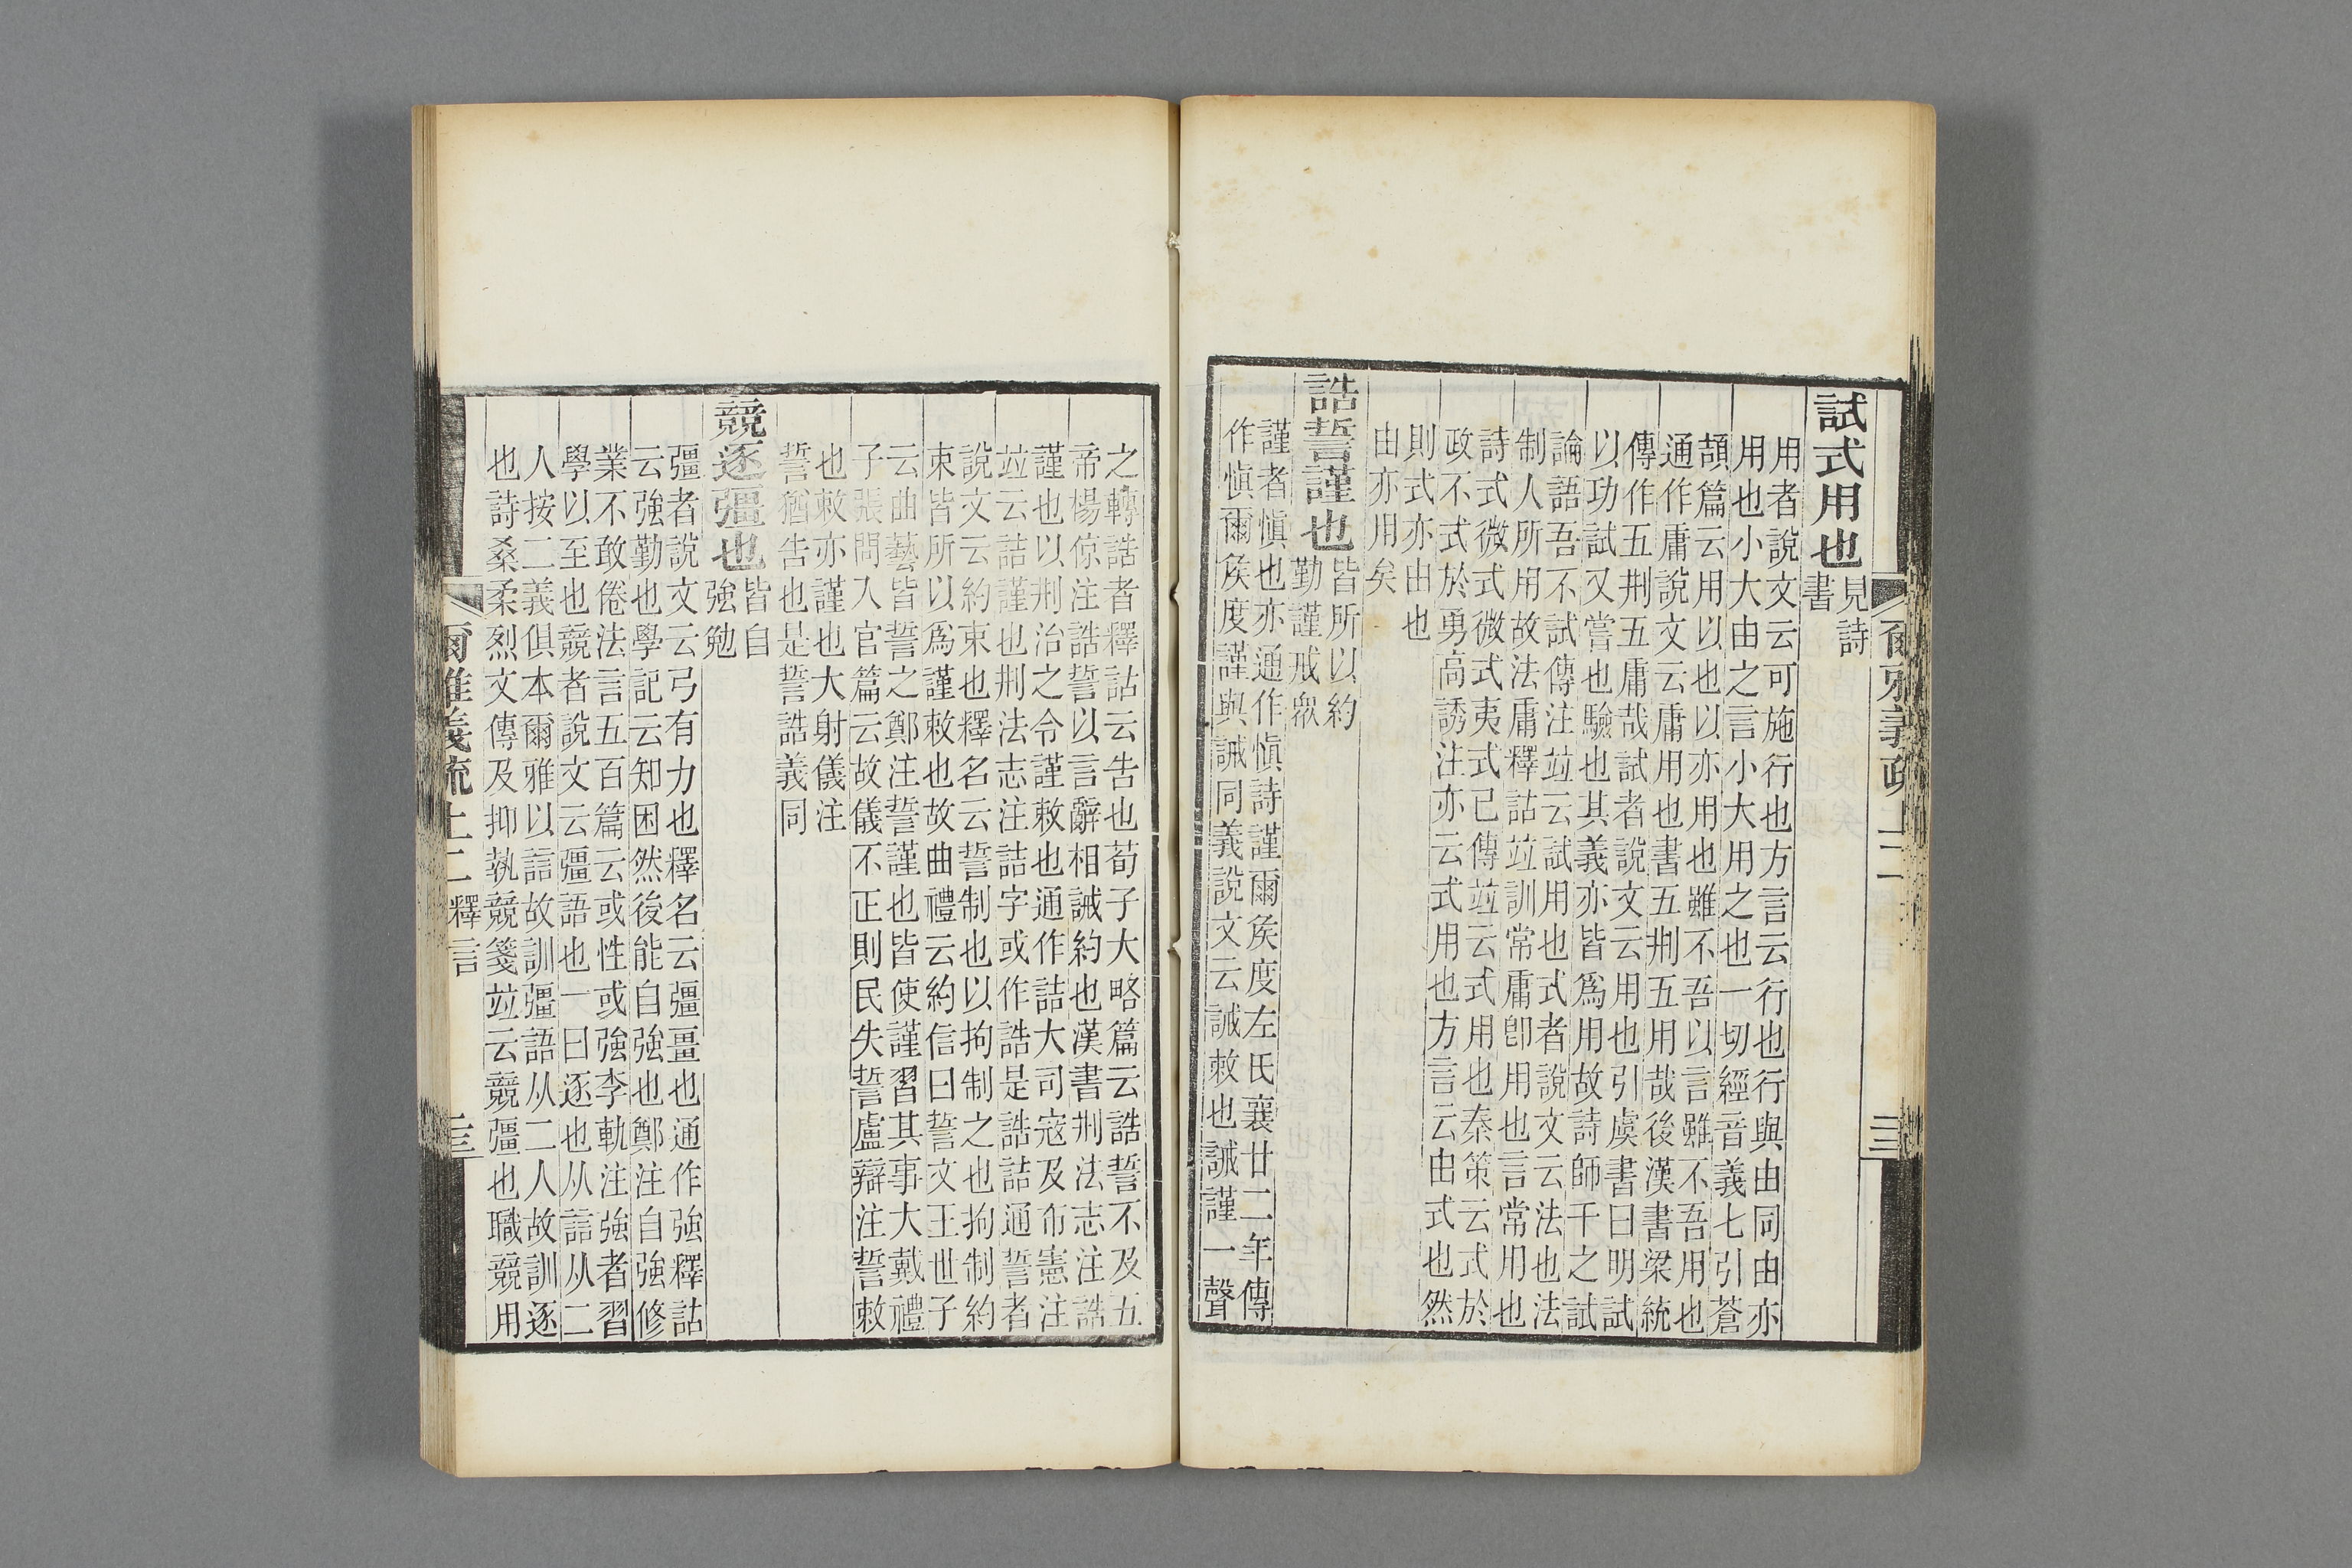 試式用也見詩
書
用者說文云可施行也方言云行也行與由同由亦
用也小大由之言小大用之也一切經音義七引蒼
頡篇云用以也以亦用也雖不吾以言雖不吾用也
通作庸說文云庸用也書五刑五用哉後漢書梁統
傳作五刑五庸哉試者說文云用也引虞書曰明試
以功試又嘗也驗也其義亦皆爲用故詩師干之試
論語吾不試傳注竝云試用也式者說文云法也法
制人所用故法庸釋詁竝訓常庸卽用也言常用也
詩式微式微式夷式已傳竝云式用也秦策云式於
政不式於勇高誘注亦云式用也方言云由式也然
則式亦由也
由亦用矣
誥誓謹也皆所以約
勤謹戒衆
謹者愼也亦通作愼詩謹爾矦度左氏襄廿二年傳
作愼爾矦度謹與誡同義說文云誡敕也誡謹一聲
爾雅義疏上二
三
之轉誥者釋詁云告也荀子大略篇云誥誓不及五
帝楊倞注誥誓以言辭相誡約也漢書刑法志注誥
謹也以刑治之令謹敕也通作詰大司寇及布憲注
竝云詰謹也刑法志注詰字或作誥是誥詰通誓者
說文云約束也釋名云誓制也以拘制之也拘制約
束皆所以爲謹敕也故曲禮云約信曰誓文王世子
云曲藝皆誓之鄭注誓謹也皆使謹習其事大戴禮
子張問入官篇云故儀不正則民失誓盧辯注誓敕
也敕亦謹也大射儀注
誓猶告也是誓誥義同
競逐彊也皆自
強勉
彊者說文云弓有力也釋名云彊畺也通作強釋詁
云強勤也學記云知困然後能自強也鄭注自強修
業不敢倦法言五百篇云或性或強李軌注強者習
學以至也競者說文云彊語也一曰逐也从誩从二
人按二義俱本爾雅以誩故訓彊語从二人故訓逐
也詩桑柔烈文傳及抑執競箋竝云競彊也職競用
爾雅義疏上二 釋言
三